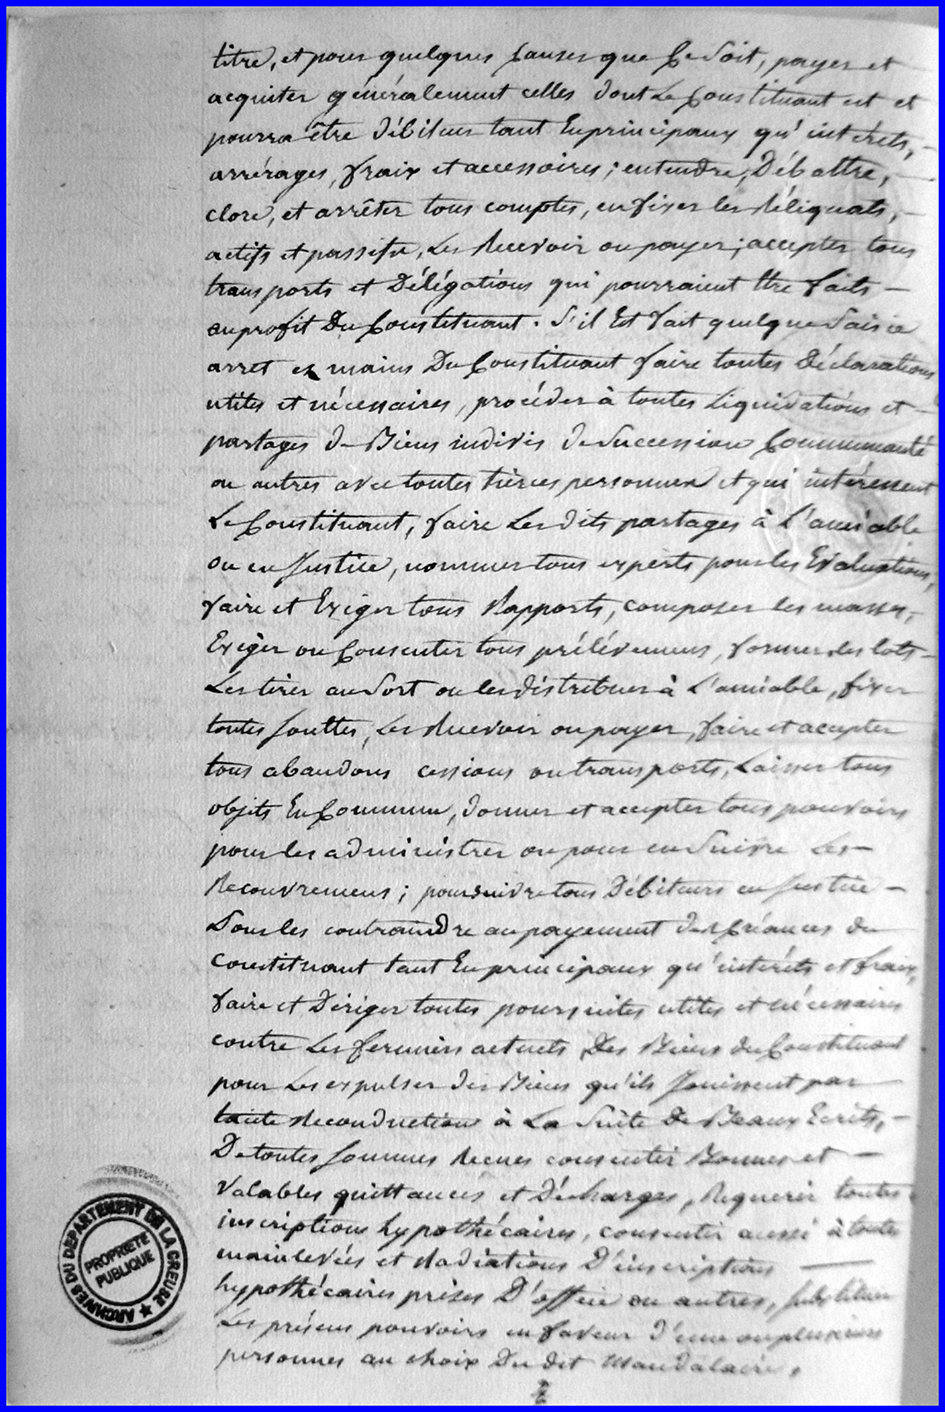 titre, et pour quelques Causes que Ce Soit, payer et
acquiter généralement celles dont Le Constituant est et
pourra être Débiteur tant En principaux qu'intérêts,
arrérages, fraix et accessoires; entendre, Débattre,
clore, et arrêter tous comptes, en fixer les Réliquats,
actifs et passifs, Les Recevoir ou payer; accepter tous
transports et Délégations qui pourraient Etre faits
au profit Du Constituant. S'il Est fait quelque Saisie
arret es mains Du Constituant faire toutes Déclarations
utiles et nécessaires, procéder à toutes Liquidations et
partages de Biens indivis de Succession Communauté
ou autres avec toutes tierces personnes et qui intéressent
Le Constituant, faire Les dits partages à L'amiable
ou en Justice, nommer tous experts pour les Evaluations,
faire et Exiger tous Rapports, composer les masses,
Exiger ou Consentir tous prélévemens, former les lots
Les tirer au Sort ou les distribuer à L'amiable, fixer
toutes Soultes, Les Recevoir ou payer, faire et accepter
tous abandons cessions ou transports, Laisser tous
objets En Commun, donner et accepter tous pouvoirs
pour les administrer ou pour en Suivre Les
Recouvremens; poursuivre tous Débiteurs en Justice
Pour les contraindre au payement des Créances du
constituant tant En principaux qu'intérêts et fraix,
faire et Diriger toutes poursuites utiles et nécessaires
contre Les fermiers actuels Des Biens du Constituant
pour Les expulser des Biens qu'ils Jouissent par
tacite Reconduction à La Suite de Beaux Ecrits,
De toutes Sommes Recues consentir Bonnes et
Valables quittances et Décharges, Requerir toutes
inscriptions hypothécaires, consentir aussi à toutes
mainlevées et Radiations D'inscriptions
hypothécaires prises D'office ou autres, Substituer
Les présens pouvoirs en faveur d'une ou plusieurs
personnes au choix Du dit Mandataire,
ARCHIVES DU DÉPARTEMENT DE LA CREUSE
PROPRIETE
PUBLIQUE